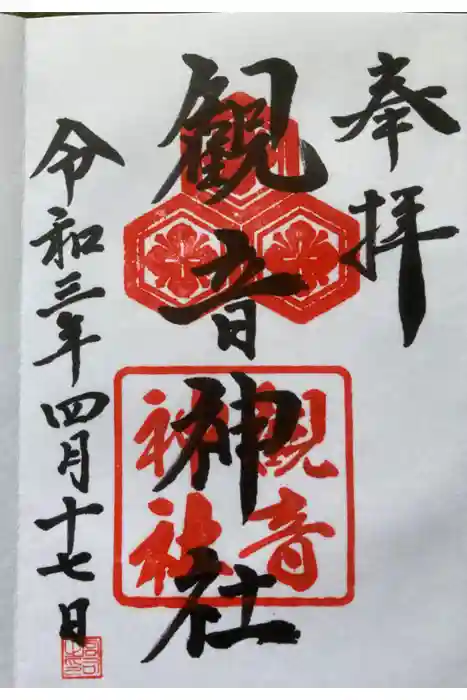 奉拝
観音神社
観音
神社
令和三年四月十七日